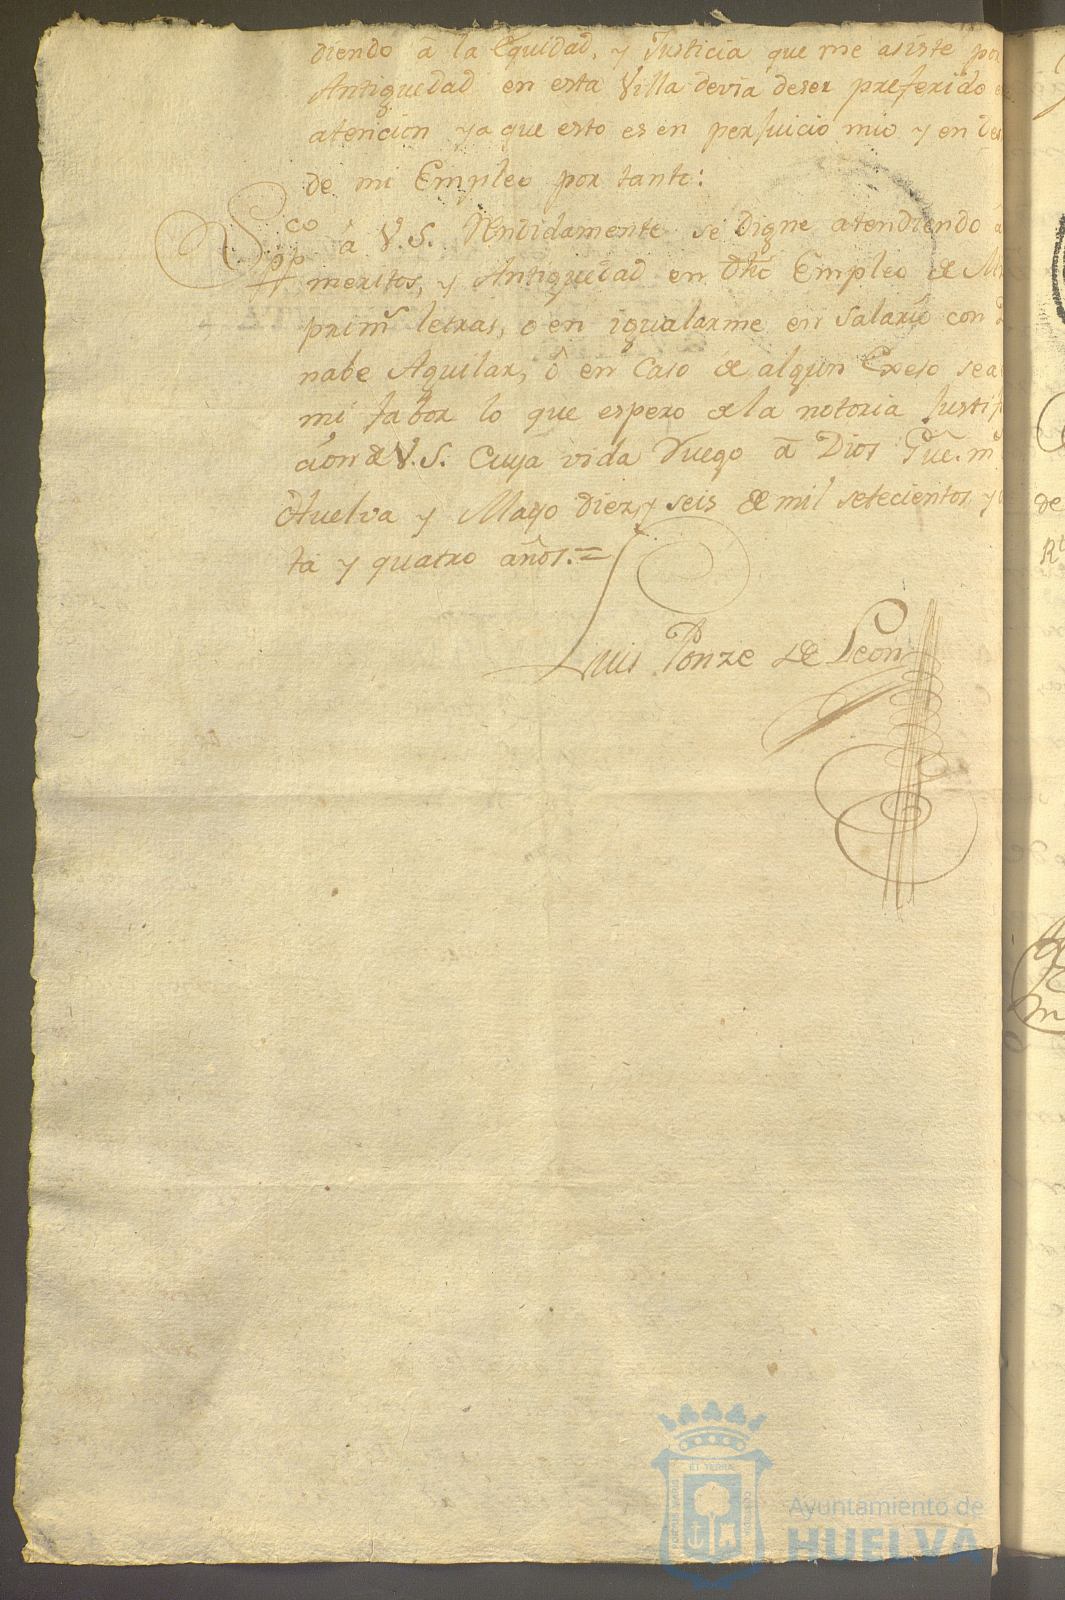 diendo â la Equidad, y Justicia que me asiste por
Antiguedad en esta Villa devia deser preferido
atencion ya que esto es en perJuicio mio y en
de mi Empleo por tanto:
Sppco â V.S. Rendidamente se Digne atendiendo â
meritos, y Antiguedad en Dho Empleo de
prims letras, o en igualarme en Salario con
nabe Aguilar, ô en Caso de algun Exeso sea
mi fabor lo que espero de la notoria Justif
cion de V.S. Cuya vida Ruego â Dios Gue. ms
Huelva y Mayo diez y seis de mil setecientos y
ta y quatro años.=
Luis Ponze de Leon
Ayuntamiento de
HUELVA